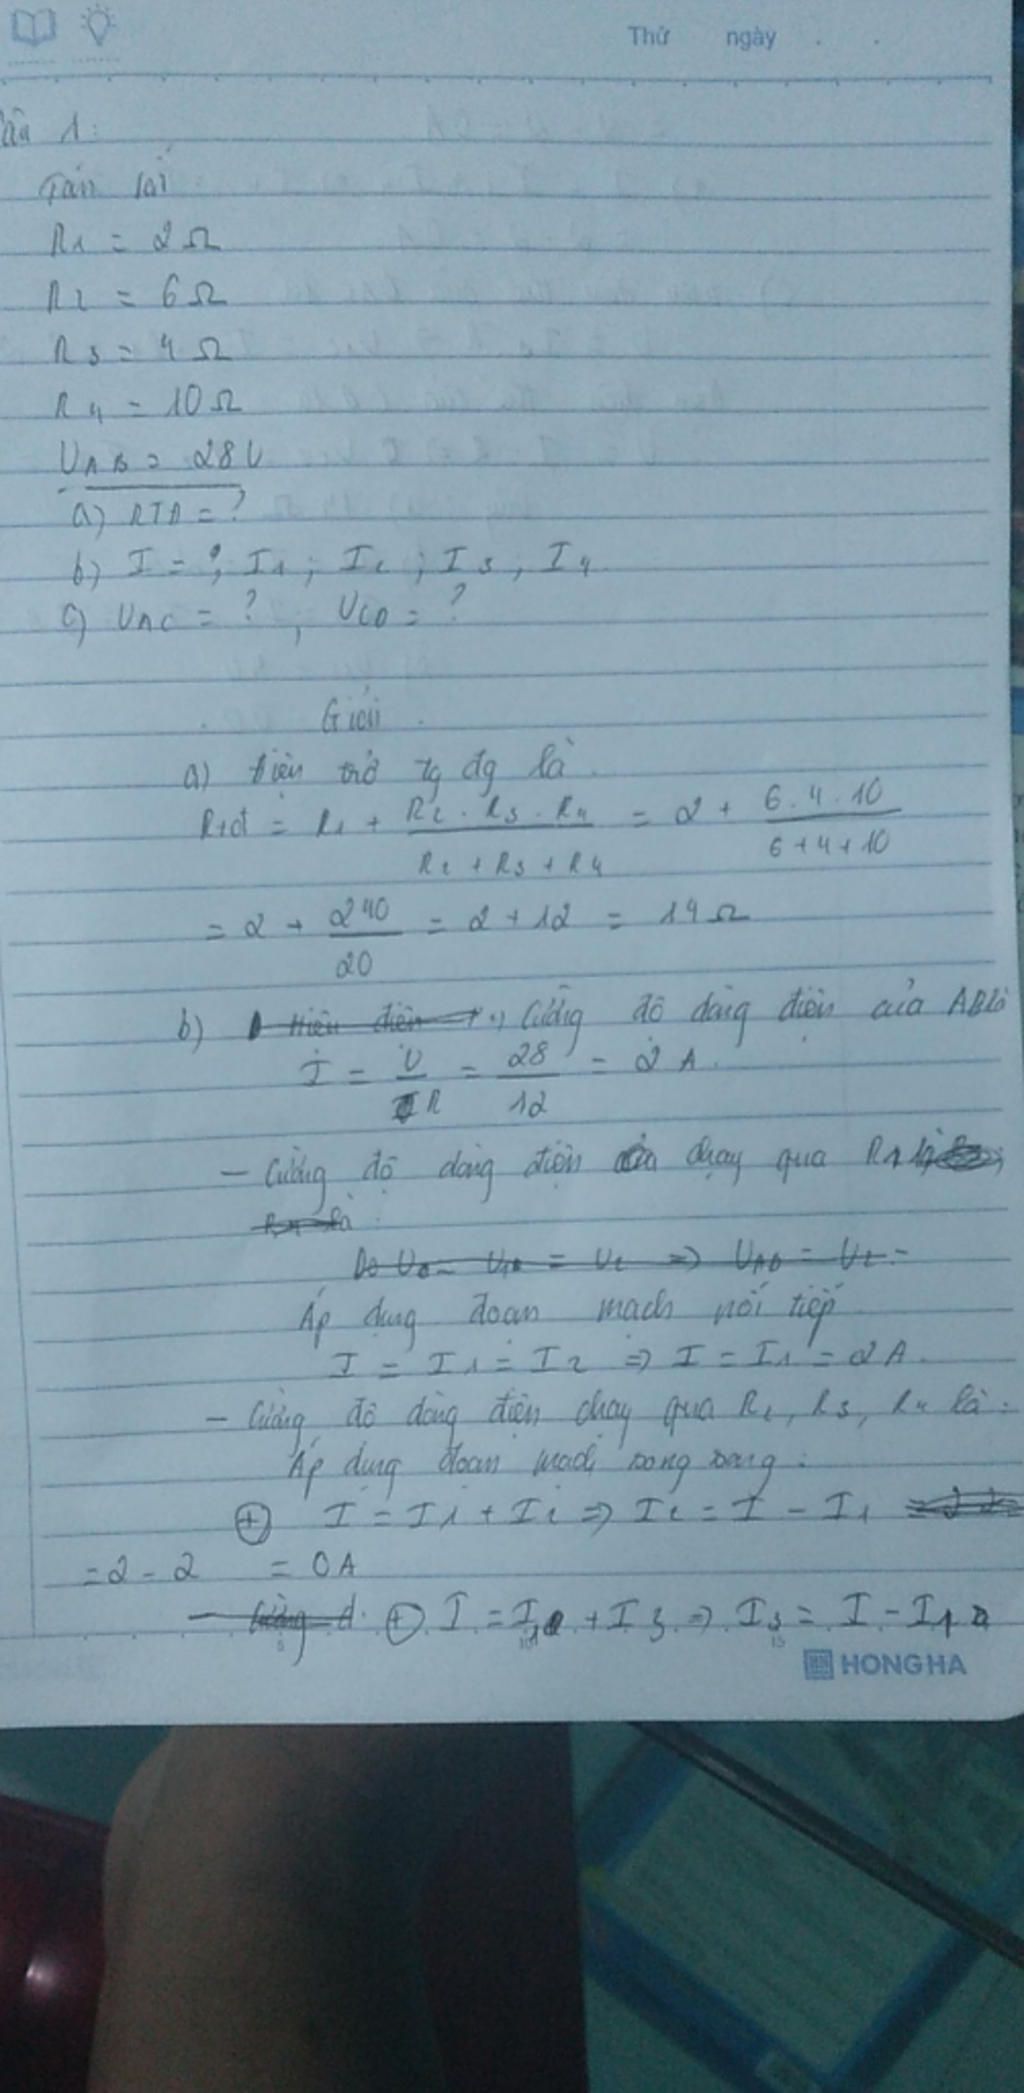 Thứ ngày . .
Câu 1:
Tóm tắt
R1 = 2Ω
R2 = 6Ω
R3 = 4Ω
R4 = 10Ω
UAB = 28V
a) RTĐ = ?
b) I = ?, I1 ; I2 ; I3 , I4
c) UAC = ? , UCD = ?
Giải
a) điện trở tg đg là
Rtđ = R1 + R2 . R3 . R4 / R2 + R3 + R4 = 2 + 6.4.10 / 6+4+10
= 2 + 240 / 20 = 2 + 12 = 14Ω
b) Hiệu điện Cường độ dòng điện của AB là
I = U / R = 28 / 12 = 2 A.
- Cường độ dòng điện chạy qua R1 là
là
UAB =
Áp dụng đoạn mạch nối tiếp
I = I1 = I2 => I = I1 = 2A.
- Cường độ dòng điện chạy qua R2, R3, R4 là:
Áp dụng đoạn mạch song song:
+ I = I1 + I2 => I2 = I - I1
= 2 - 2 = 0A
Cường đ + I = I + I3 => I3 = I - I1
5 10 15
HONG HA